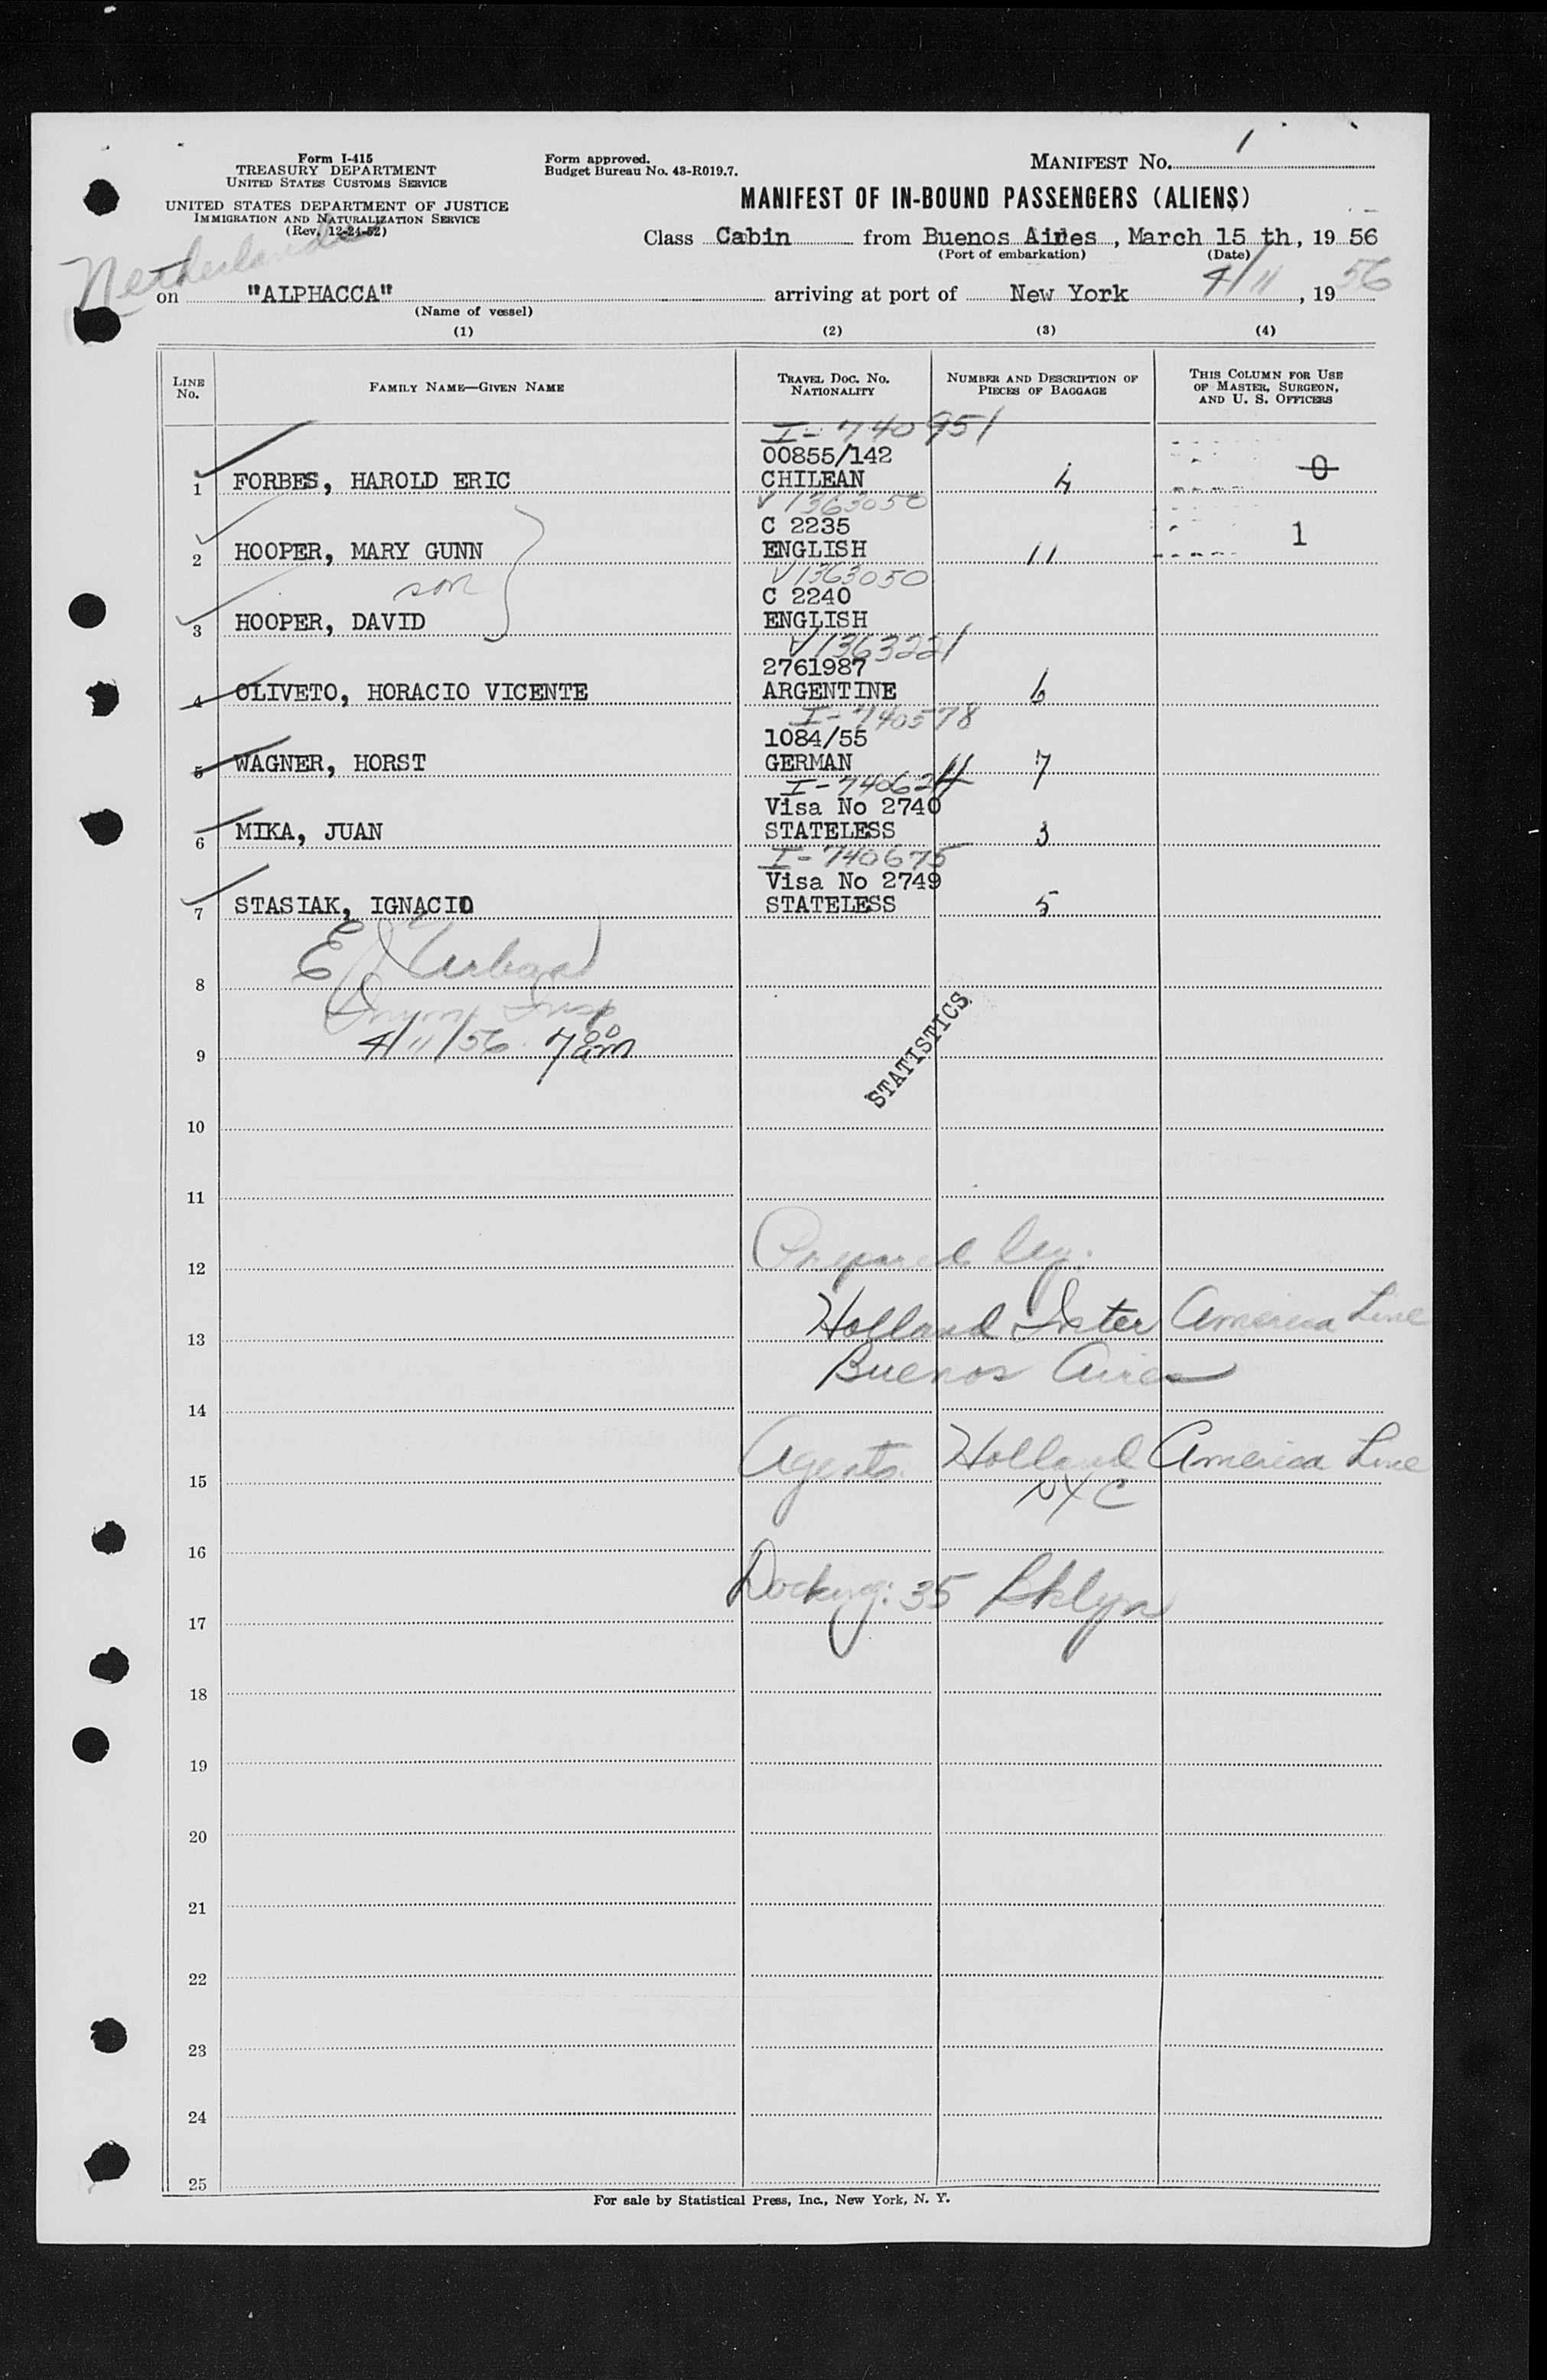 Form I-415
TREASURY DEPARTMENT
UNITED STATES CUSTOMS SERVICE
UNITED STATES DEPARTMENT OF JUSTICE
IMMIGRATION AND NATURALIZATION SERVICE
(Rev. 12-24-52)
Form approved.
Budget Bureau No. 43-R019.7.
MANIFEST NO. 1
MANIFEST OF IN-BOUND PASSENGERS (ALIENS)
Class Cabin from Buenos Aires, March 15 th, 19 56
(Port of embarkation) (Date)
Netherlands
on "ALPHACCA" arriving at port of New York 4/11, 19 56
(Name of vessel)
(1) (2) (3) (4)
LINE No. FAMILY NAME—GIVEN NAME TRAVEL DOC. NO. NATIONALITY NUMBER AND DESCRIPTION OF PIECES OF BAGGAGE THIS COLUMN FOR USE OF MASTER, SURGEON, AND U. S. OFFICERS
I-740951
00855/142
1 FORBES, HAROLD ERIC CHILEAN 4 0
V1363050
C 2235
2 HOOPER, MARY GUNN ENGLISH 11 1
V1363050
son C 2240
3 HOOPER, DAVID ENGLISH
V1363221
2761987
4 OLIVETO, HORACIO VICENTE ARGENTINE 6
I-740578
1084/55
5 WAGNER, HORST GERMAN 7
I-740624
Visa No 2740
6 MIKA, JUAN STATELESS 3
I-740675
Visa No 2749
7 STASIAK, IGNACIO STATELESS 5
8
Immig Insp
9 4/11/56 7 00 am
STATISTICS
10
11
12 Prepared by:
13 Holland Inter America Line
Buenos Aires
14
15 Agents Holland America Line
NYC
16
17 Docking: 35 Bklyn
18
19
20
21
22
23
24
25
For sale by Statistical Press, Inc., New York, N. Y.